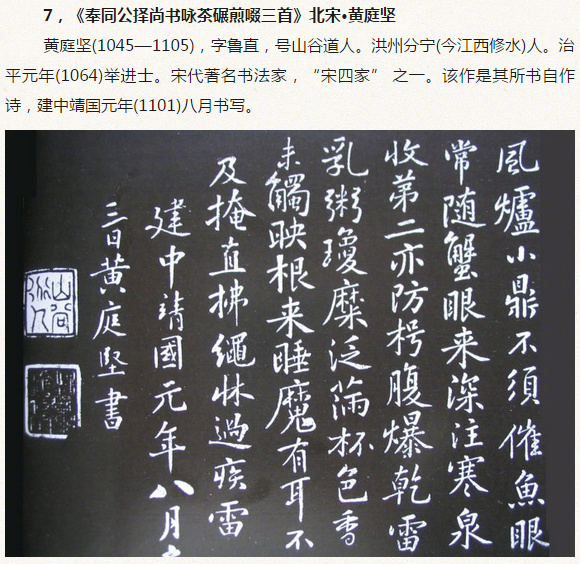 7，《奉同公择尚书咏茶碾煎啜三首》北宋•黄庭坚
黄庭坚(1045—1105)，字鲁直，号山谷道人。洪州分宁(今江西修水)人。治
平元年(1064)举进士。宋代著名书法家，“宋四家” 之一。该作是其所书自作
诗，建中靖国元年(1101)八月书写。
風爐小鼎不須催魚眼
常随蟹眼来深注寒泉
收第二亦防枵腹爆乾雷
乳粥瓊糜泛滿杯色香
未觸映根来睡魔有耳不
及掩直拂繩牀過疾雷
建中靖國元年八月
三日黄庭堅書
山谷道人